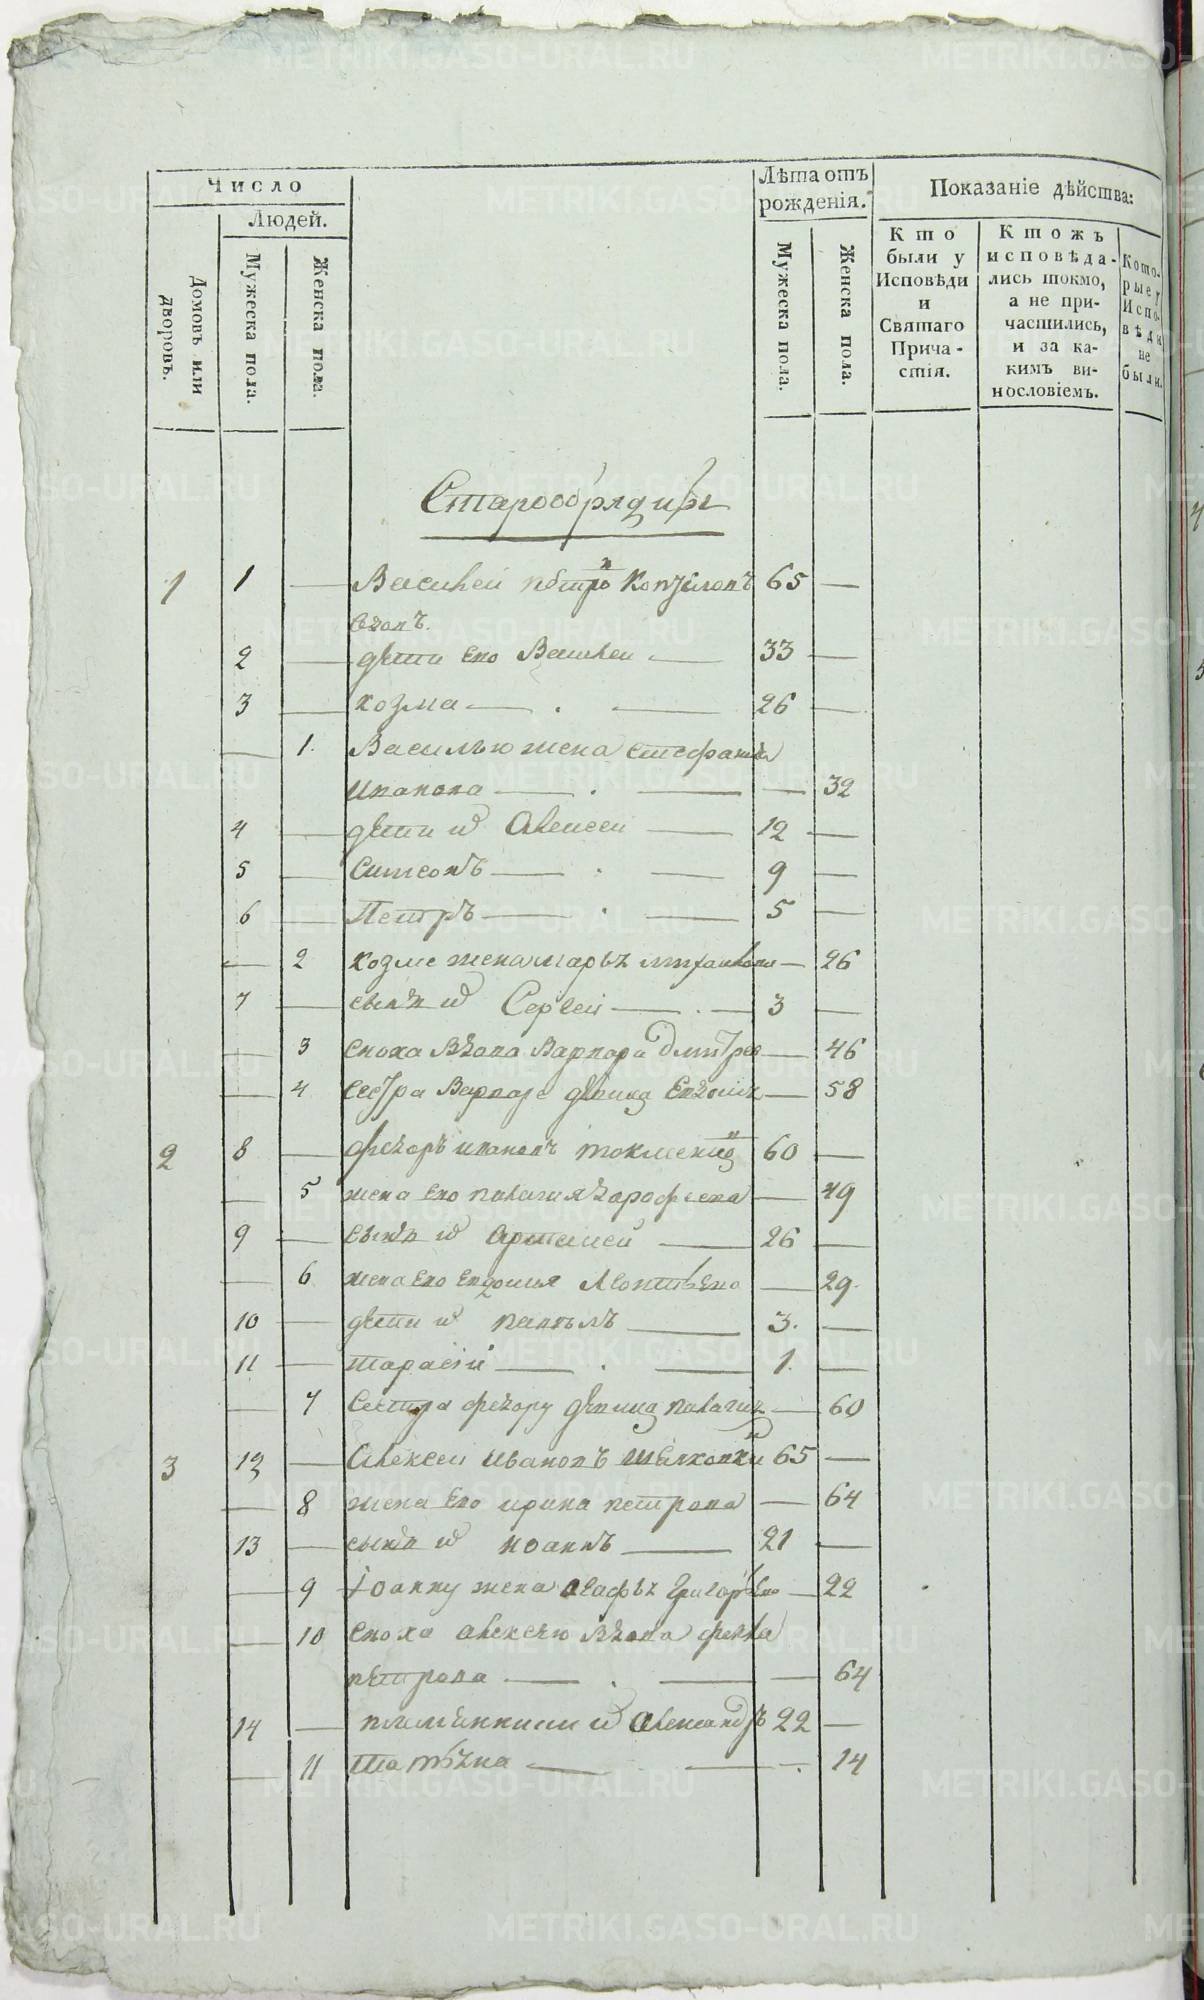 Число
Людей.
Домовъ или дворовъ.
Мужеска пола.
Женска пола.
Лѣта отъ рожденія.
Мужеска пола.
Женска пола.
Показаніе дѣйства:
Кто были у Исповѣди и Святаго Прича-стія.
Ктожъ исповѣда-лись токмо, а не при-частились, и за ка-кимъ ви-нословіемъ.
Кото-рые у Испо-вѣди не были.
Старообрядцы
1 1 — Василей 65 —
вдовъ.
2 — дети его Василеи — 33 —
3 — козма — . — 26 —
— 1. Василью жена стефанида
иванова — . — — 32
4 — дети их Алексеи — 12 —
5 — Симеонъ — . — 9 —
6 — Петръ — . — 5 —
— 2 козме жена марья — 26
7 — сынъ их Сергей — . — 3 —
— 3 сноха вдова Варвара дмитрев — 46
— 4 сестра девица Евдокия — 58
2 8 — федоръ ивановъ 60 —
— 5 жена его палагия дорофеева — 49
9 — сынъ их Артемей — 26 —
— 6 жена его евдокия Леонтьева — 29.
10 — дети их — 3. —
11 — тарасій — . — 1. —
— 7 Сестра федору девица палагия — 60
3 12 — Алексеи Ивановъ 65 —
— 8 жена его ирина петрова — 64
13 — сынъ их иоаннъ — 21 —
— 9 Іоанну жена агафья Григорьева — 22
— 10 сноха алексею вдова фекла
петрова — . — — 64
14 — племянники их Александръ 22 —
— 11 татьяна — — . 14
METRIKI.GASO-URAL.RU